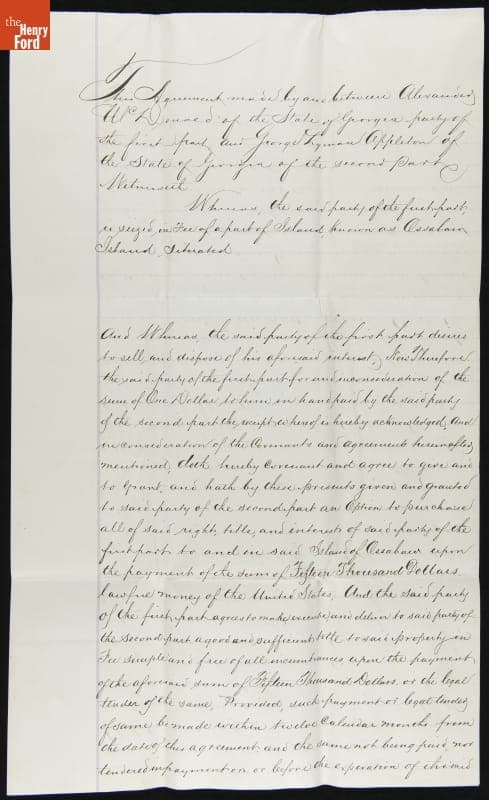 the
Henry
Ford
This Agreement made by and between Alexander
McDonald of the State of Georgia party of
the first part and George Lyman Appleton of
the State of Georgia of the second Part
Witnesseth
Whereas, the said party of the first part,
is seized, in Fee of a part of Island, known as Ossabaw
Island, situated
And Whereas, the said party of the first part desires
to sell and dispose of his aforesaid interest, Now Therefore
the said party of the first part for and in consideration of the
sum of One Dollar to him in hand paid by the said party
of the second part the receipt whereof is hereby acknowledged, and
in consideration of the Covenants and agreements hereinafter
mentioned, doth hereby covenant and agree to give and
to Grant, and hath by these presents given and granted
to said party of the second part an Option to purchase
all of said right, title, and interest of said party of the
first part to and in said Island of Ossabaw upon
the payment of the sum of Fifteen Thousand Dollars
lawful money of the United States. And the said party
of the first part agrees to make execute and deliver to said party of
the second part a good and sufficient title to said property in
Fee simple and free of all incumbrances upon the payment
of the aforesaid sum of Fifteen Thousand Dollars, or the legal
tender of the same, Provided, such payment or legal tender
of same be made within twelve Calendar months from
the date of this agreement and the same not being paid nor
tendered in payment on or before the expiration of the said